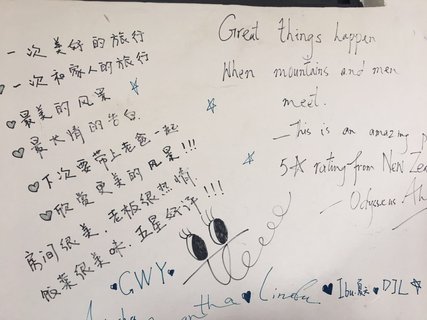 一次美好的旅行
一次和家人的旅行
最美的风景
最大情的告白
下次要带上老爸一起
欣赏更美的风景!!!
房间很美，老板很热情
饭菜很美味，五星好评!!!
Great things happen
When mountains and men
meet.
— This is an amazing
5☆ rating from New
— Odysseus.
GWY
Linda
Ibu
DJL